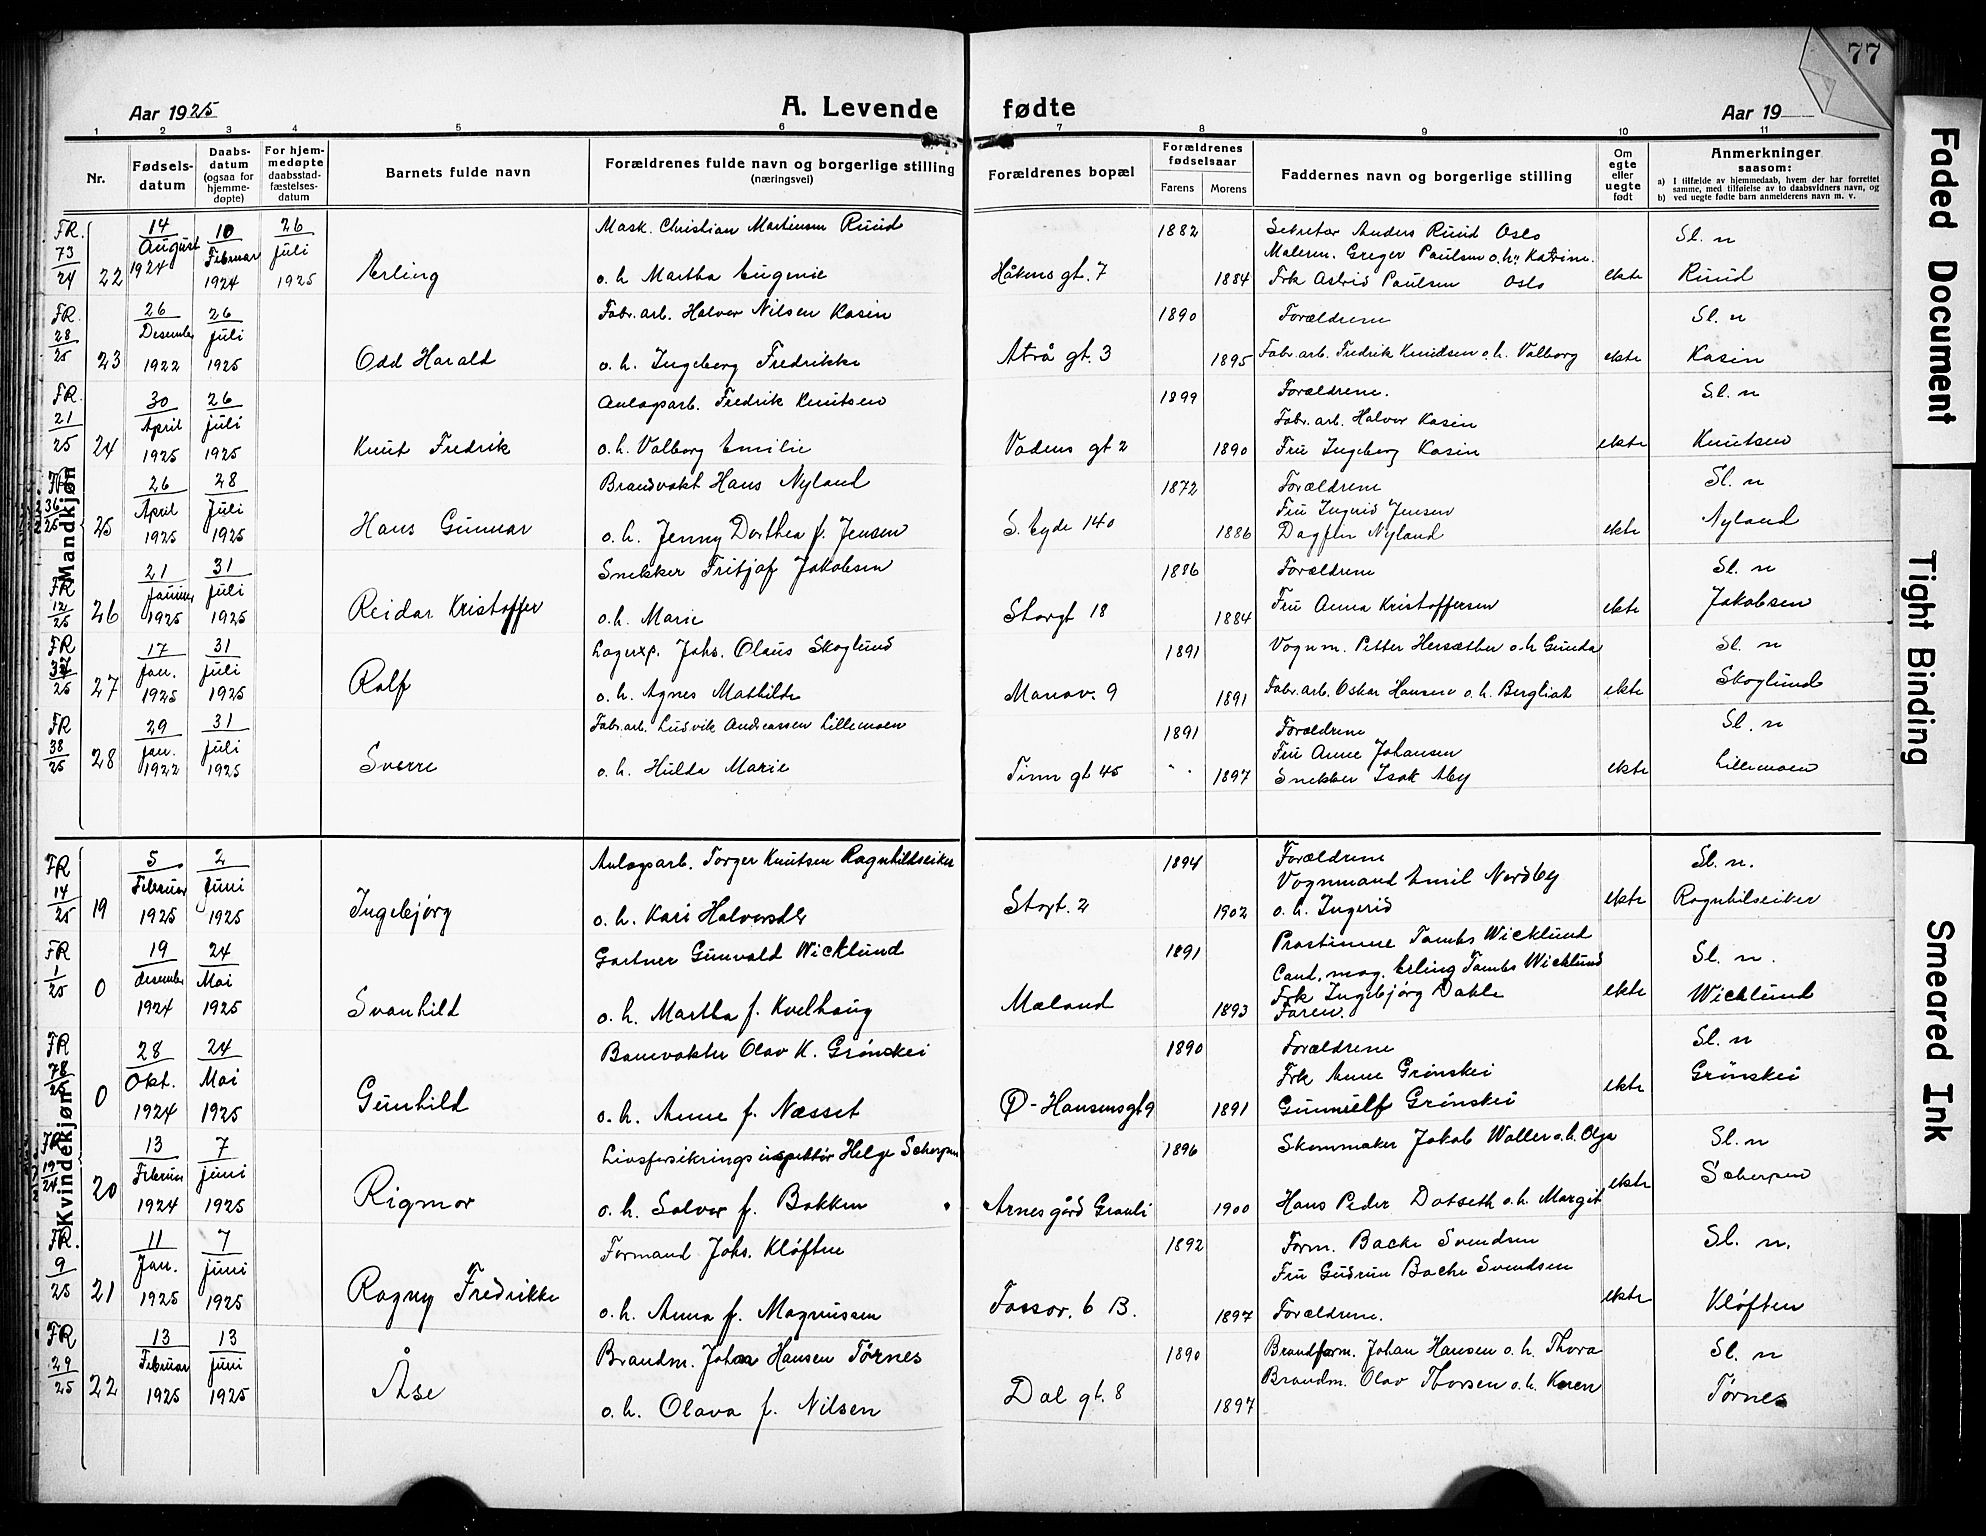 77
Aar 1925
A. Levende fødte
Aar 19
1 2 3 4 5 6 7 8 9 10 11
Nr.
Fødsels-
datum
Daabs-
datum
(ogsaa for
hjemme-
døpte)
For hjem-
medøpte
daabsstad-
fæstelses-
datum
Barnets fulde navn
Forældrenes fulde navn og borgerlige stilling
(næringsvei)
Forældrenes bopæl
Forældrenes
fødselsaar
Farens
Morens
Faddernes navn og borgerlige stilling
Om
egte
eller
uegte
født
Anmerkninger
saasom:
a) I tilfælde av hjemmedaab, hvem der har forrettet
samme, med tilføielse av to daabsvidners navn, og
b) ved uegte fødte barn anmelderens navn m. v.
Mandkjøn
FR. 14 10 26 Mask. Christian Martinsen Ruud 1882 Sekretær Anders Ruud Oslo Sl. n
73 August Februar Juli Malerm. Greger Paulsen o.h. Katrine.
24 22 1924 1924 1925 Erling o. h. Martha Eugenie Håkens gt. 7 1884 Frk Astrid Paulsen Oslo ekte Ruud
FR. 26 26 Fabr. arb. Halvor Nilsen Kasin 1890 Forældrene Sl. n
28 Desember Juli
25 23 1922 1925 Odd Harald o. h. Ingeborg Fredrikke Atrå gt. 3 1895 Fabr. arb. Fredrik Knudsen o. h. Valborg ekte Kasin
FR. 30 26 Anlagsarb. Fredrik Knutsen 1899 Forældrene. Sl. n
21 April Juli Fabr. arb. Halvor Kasin
25 24 1925 1925 Knut Fredrik o. h. Valborg Emilie Vadens gt 2 1890 Fru Ingeborg Kasin ekte Knutsen
FR 26 28 Brandvakt Hans Nyland 1872 Forældrene Sl. n
36 April Juli Fru Ingrid Jensen
25 25 1925 1925 Hans Gunnar o. h. Jenny Dorthea f. Jensen S. Eyde 140 1886 Dagfin Nyland ekte Nyland
FR 21 31 Snekker Fritjof Jakobsen 1886 Forældrene Sl. n
12 Januar Juli
25 26 1925 1925 Reidar Kristoffer o. h. Marie Storgt 18 1884 Fru Anna Kristoffersen ekte Jakobsen
FR 17 31 Lagerxp. Johs. Olaus Skoglund 1891 Vognm. Petter Hersæther o. h Gunda Sl. n
37 Jan. Juli
25 27 1925 1925 Rolf o. h. Agnes Mathilde Manav. 9 1891 Fabr. arb. Oskar Hansen o. h. Bergliot ekte Skoglund
FR 29 31 Fabr. arb. Ludvik Andreassen Lillemoen 1891 Forældrene Sl. n
38 Jan. Juli Fru Anne Johansen
25 28 1922 1925 Sverre o. h. Hulda Marie Tinn gt 45 1897 Snekker Isak Aby ekte Lillemoen
Kvindekjøn
FR 5 2 Anlagsarb. Torger Knutsen Ragnhildseiker 1894 Forældrene Sl. n.
14 Februar Juni Vognmand Emil Nordby
25 19 1925 1925 Ingebjørg o. h. Kari Halvorsdtr Storgt. 2 1902 o. h. Ingerid ekte Ragnhilseiker
FR 19 24 Gartner Gunvald Wicklund 1891 Prostinne Tambs Wicklund Sl. n.
1 desember Mai Cand. mag. Erling Tambs Wicklund
25 0 1924 1925 Svanhild o. h. Martha f. Kvelhaug Mæland 1893 Frk Ingebjørg Dahle ekte Wicklund
Faren.
FR 28 24 Banevokter Olav K. Grønskei 1890 Forældrene Sl. n
78 Okt. Mai Frk Anne Grønskei
25 0 1924 1925 Gunhild o. h. Anne f. Næsset Ø-Hansensgt 9 1891 Gunnulf Grønskei ekte Grønskei
FR 13 7 Livsforsikringsinspektør Helge Scherpen 1896 Skommaker Jakob Waller o. h. Olga Sl. n
19 Februar Juni
24 20 1924 1925 Rigmor o. h. Solvor f. Bakken Arnesgård Grauli 1900 Hans Peder Dotseth o. h. Margit ekte Scherpen
FR. 11 7 Formand Johs. Kløften 1892 Form. Backe Svendsen Sl. n.
9 Jan. Juni Fru Gudrun Backe Svendsen
25 21 1925 1925 Ragny Fredrikke o. h. Anna f. Magnussen Fossov. 6 B. 1897 Forældrene. ekte Kløften
FR 13 13 Brandm. Johan Hansen Tørnes 1890 Brandform. Johan Hansen o. h. Thora Sl. n
29 Februar Juni Brandm. Olav Thorsen o. h. Karen
25 22 1925 1925 Åse o. h. Olava f. Nilsen Dal gt. 8 1897 Tørnes
Faded Document
Tight Binding
Smeared Ink